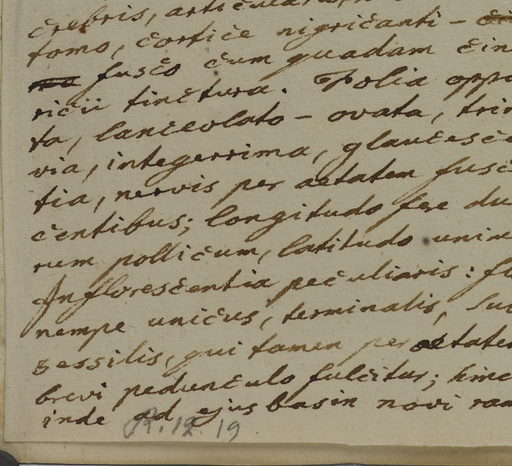 crebris, articula
tomo, cortice nigricanti -
fusco cum quadam cin
ricii tinctura. Folia oppo
ta, lanceolato - ovata, trin
via, integerrima, glaucesce
tia, nervis per aetatem fusc
centibus; longitudo fere du
rum pollicum, latitudo unius
Inflorescentia peculiaris: fl
nempe unicus, terminalis, su
sessilis, qui tamen per aetatem
brevi pedunculo fulcitur; hinc
inde ad ejus basin novi ram
R. 12. 19